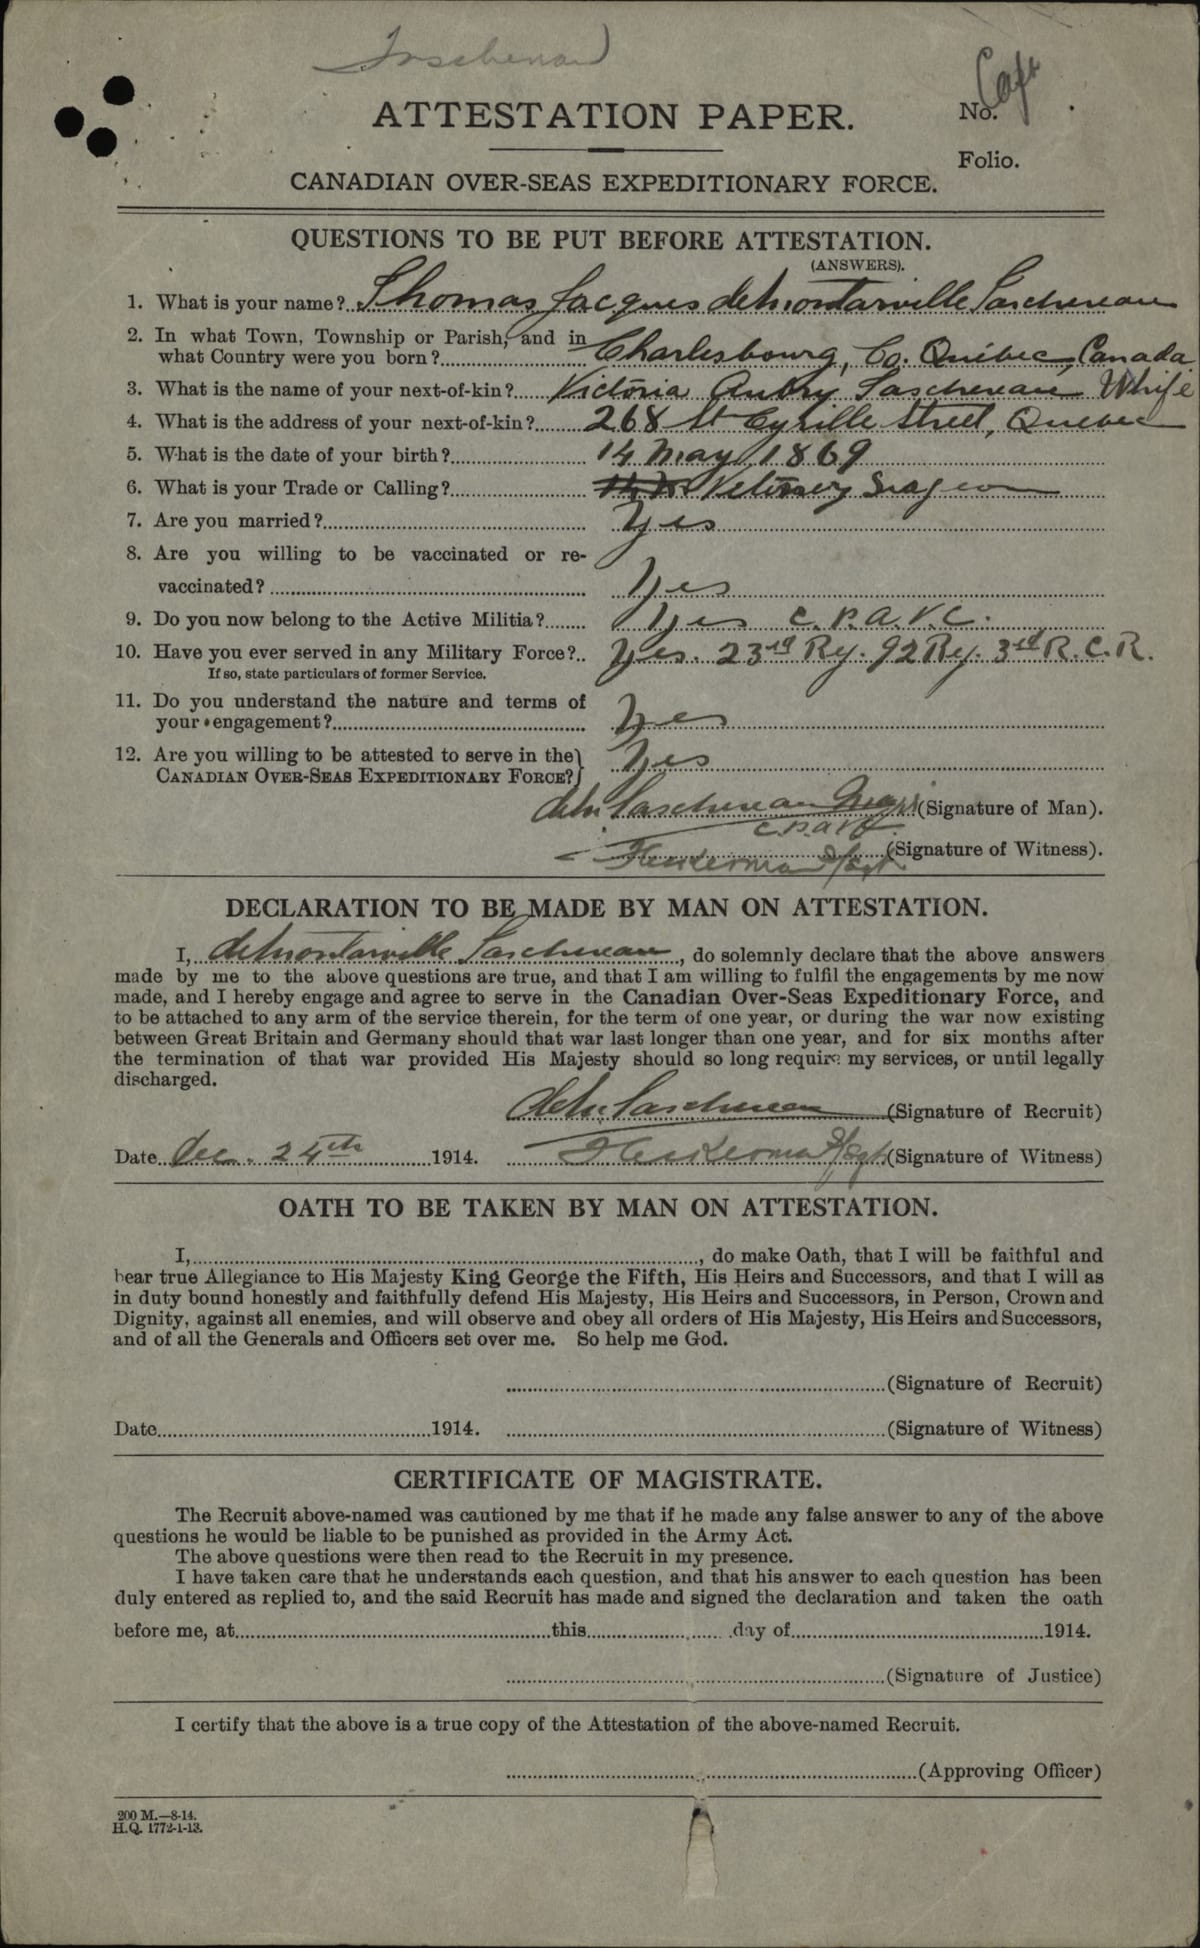 Taschereau
ATTESTATION PAPER.
No. Capt
Folio.
CANADIAN OVER-SEAS EXPEDITIONARY FORCE.
QUESTIONS TO BE PUT BEFORE ATTESTATION.
(ANSWERS).
1. What is your name? Thomas Jacques deMontarville Taschereau
2. In what Town, Township or Parish, and in
what Country were you born? Charlesbourg, Co. Québec, Canada
3. What is the name of your next-of-kin? Victoria Aubry Taschereau Whife
4. What is the address of your next-of-kin? 268 St Cyrille Street, Quebec
5. What is the date of your birth? 14 May 1869
6. What is your Trade or Calling? Vetinery Surgeon
7. Are you married? Yes
8. Are you willing to be vaccinated or re-
vaccinated? Yes
9. Do you now belong to the Active Militia? Yes C.P.A.V.C.
10. Have you ever served in any Military Force? Yes. 23rd Ry. 92 Ry. 3rd R.C.R.
If so, state particulars of former Service.
11. Do you understand the nature and terms of
your engagement? Yes
12. Are you willing to be attested to serve in the
CANADIAN OVER-SEAS EXPEDITIONARY FORCE? Yes
deM Taschereau (Signature of Man).
C.P.A.V.C.
(Signature of Witness).
DECLARATION TO BE MADE BY MAN ON ATTESTATION.
I, deMontarville Taschereau, do solemnly declare that the above answers
made by me to the above questions are true, and that I am willing to fulfil the engagements by me now
made, and I hereby engage and agree to serve in the Canadian Over-Seas Expeditionary Force, and
to be attached to any arm of the service therein, for the term of one year, or during the war now existing
between Great Britain and Germany should that war last longer than one year, and for six months after
the termination of that war provided His Majesty should so long require my services, or until legally
discharged.
deM Taschereau (Signature of Recruit)
Date Dec. 24th 1914. (Signature of Witness)
OATH TO BE TAKEN BY MAN ON ATTESTATION.
I, , do make Oath, that I will be faithful and
bear true Allegiance to His Majesty King George the Fifth, His Heirs and Successors, and that I will as
in duty bound honestly and faithfully defend His Majesty, His Heirs and Successors, in Person, Crown and
Dignity, against all enemies, and will observe and obey all orders of His Majesty, His Heirs and Successors,
and of all the Generals and Officers set over me. So help me God.
(Signature of Recruit)
Date 1914. (Signature of Witness)
CERTIFICATE OF MAGISTRATE.
The Recruit above-named was cautioned by me that if he made any false answer to any of the above
questions he would be liable to be punished as provided in the Army Act.
The above questions were then read to the Recruit in my presence.
I have taken care that he understands each question, and that his answer to each question has been
duly entered as replied to, and the said Recruit has made and signed the declaration and taken the oath
before me, at this day of 1914.
(Signature of Justice)
I certify that the above is a true copy of the Attestation of the above-named Recruit.
(Approving Officer)
200 M.—8-14.
H.Q. 1772-1-13.